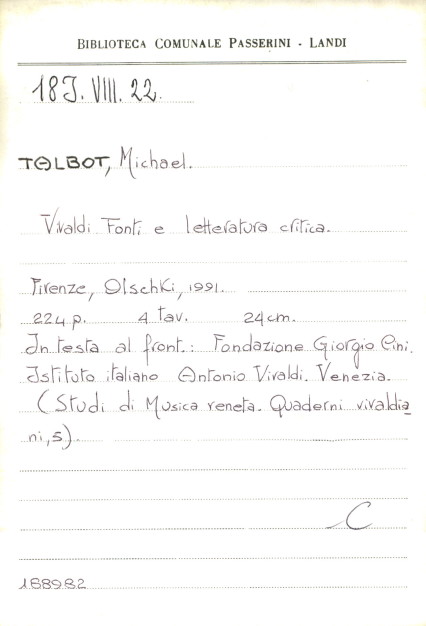 BIBLIOTECA COMUNALE PASSERINI - LANDI
18J. VIII. 22.
TALBOT, Michael.
Vivaldi Fonti e letteratura critica.
Firenze, Olschki, 1991.
224 p. 4 tav. 24 cm.
In testa al front.: Fondazione Giorgio Cini.
Istituto italiano Antonio Vivaldi. Venezia.
(Studi di Musica veneta. Quaderni vivaldia
ni, 5).
C
188982